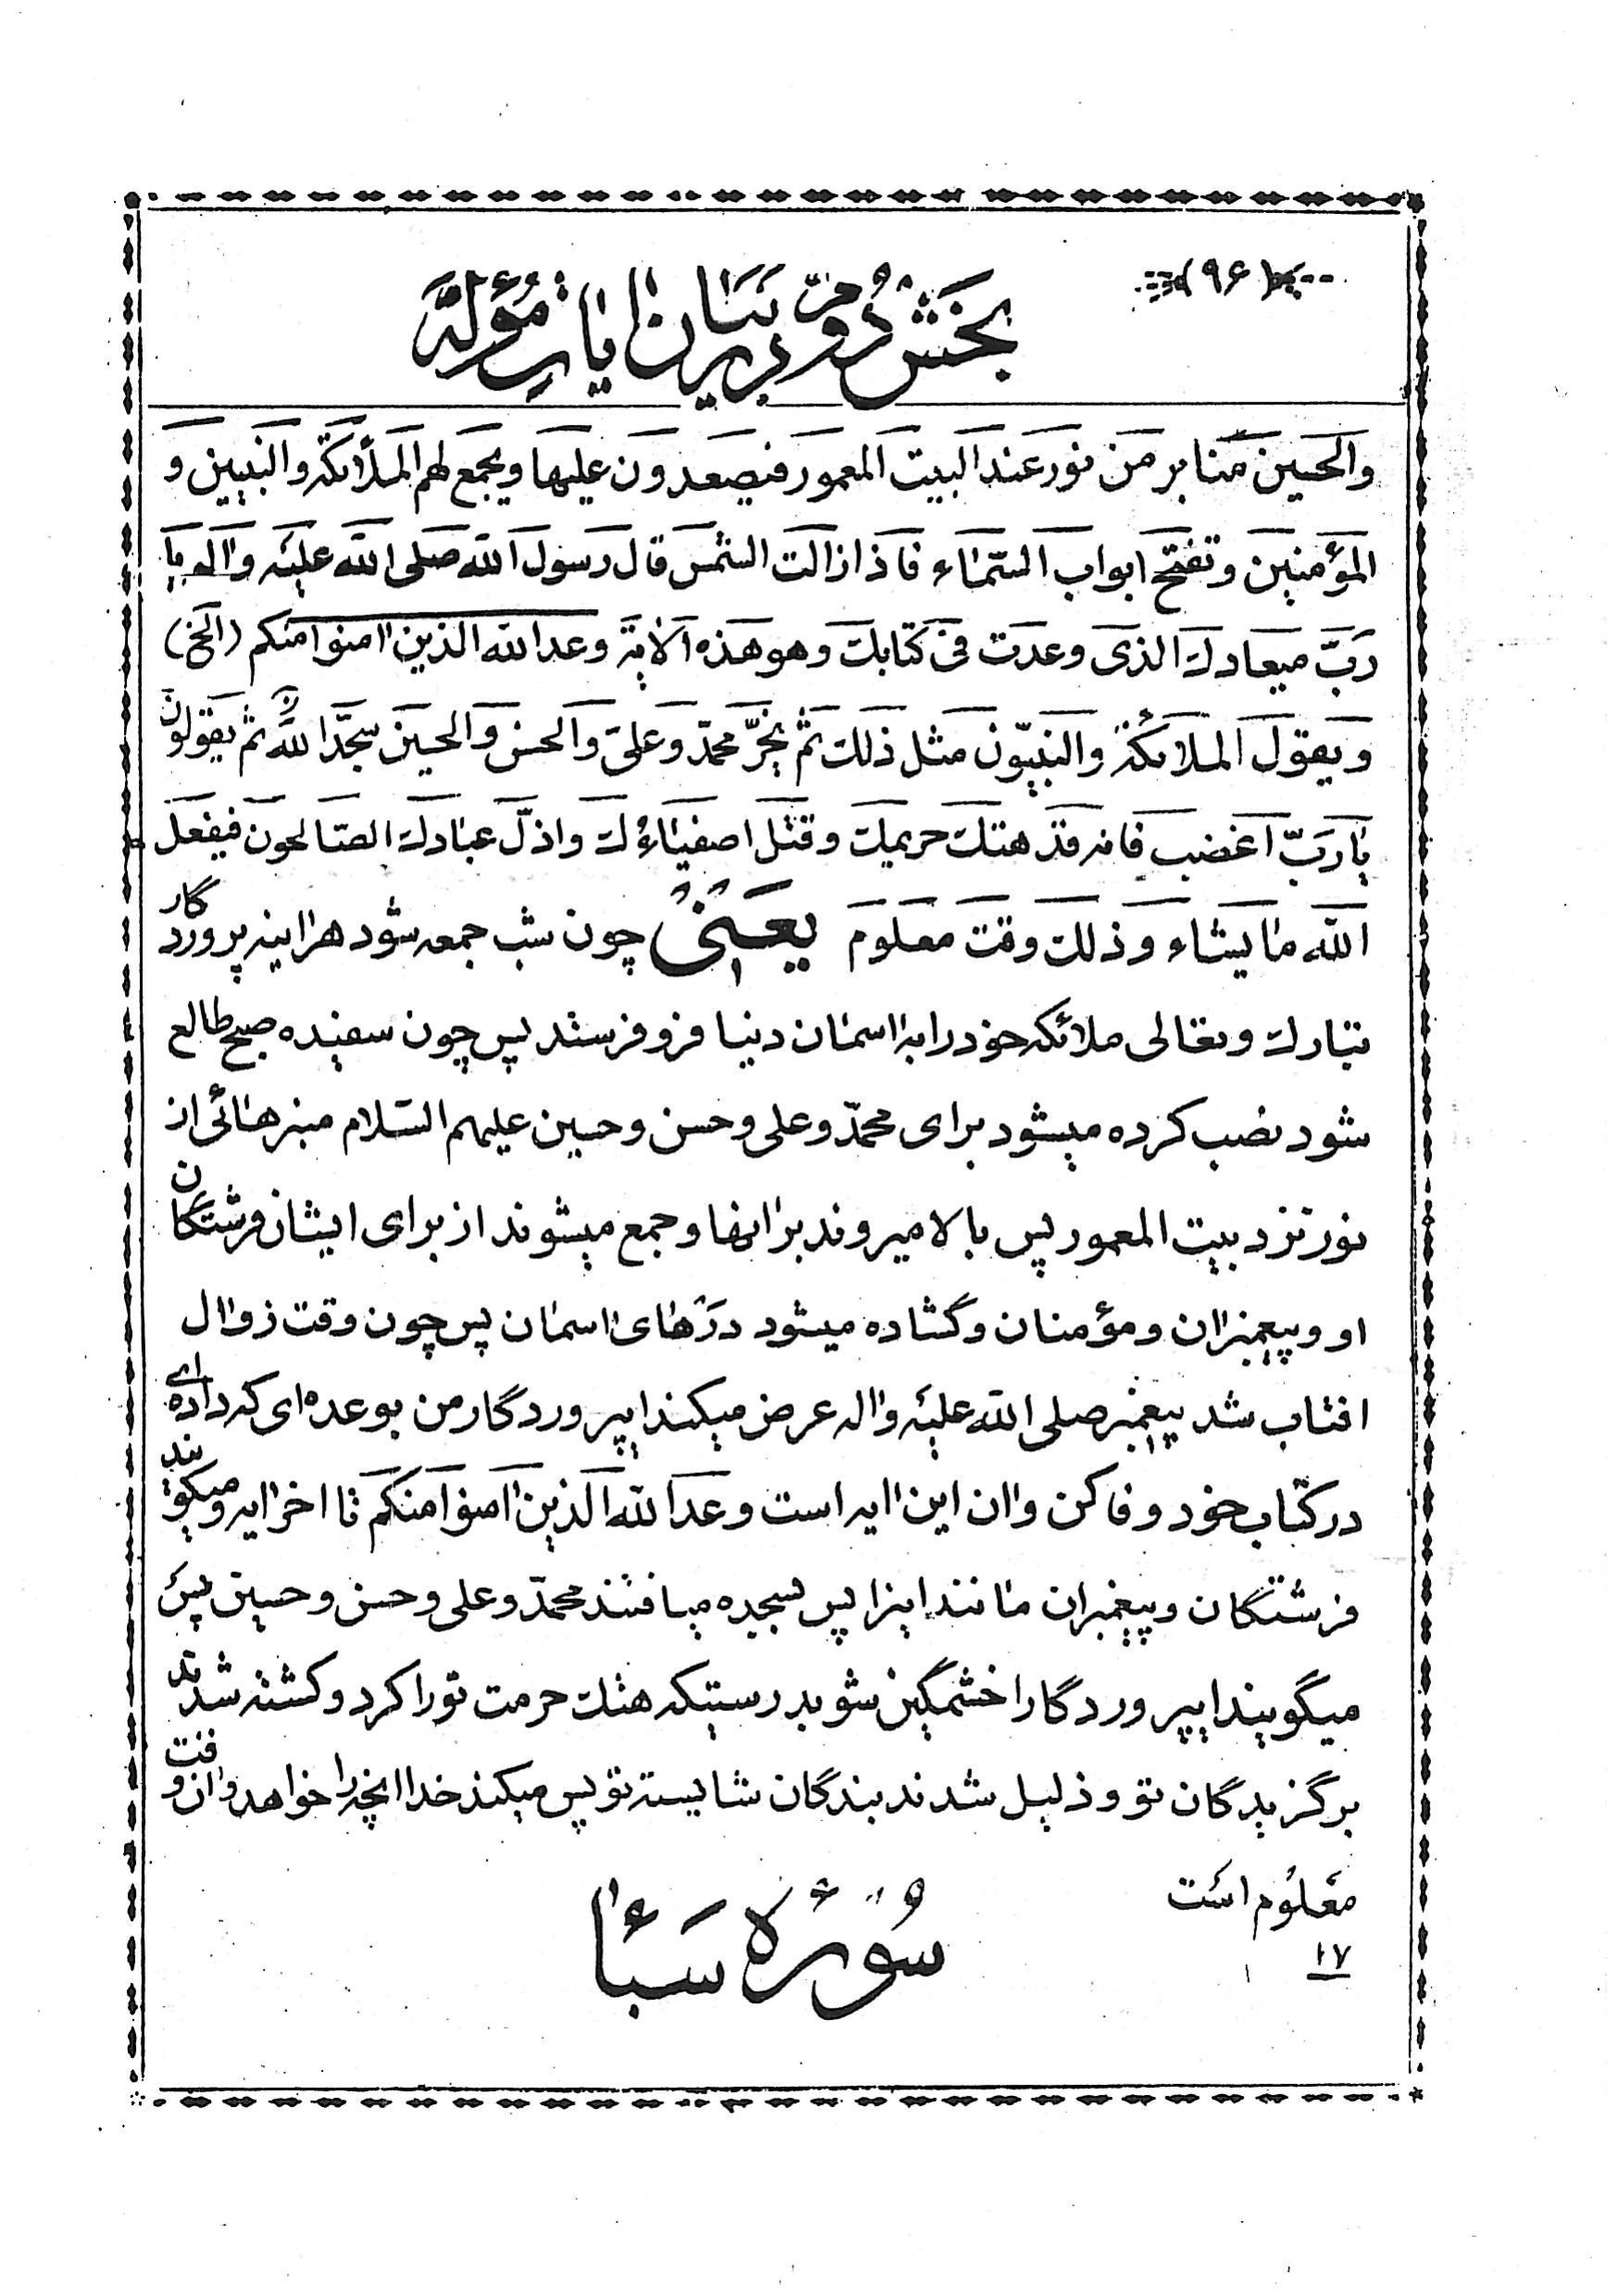 (۹۶)
بخش دوم در بیان ایات مؤله
والحسین منابر من نور عند البیت المعمور فیصعدون علیها ویجمع لهم الملأئکة والنبیین و
المؤمنین وتفتح ابواب السّماء فاذا زالت الشمس قال رسول الله صلی الله علیه واله یا
ربّ میعادك الذی وعدت فی کتابك وهو هذه الایة وعد الله الذین امنوا منکم (الخ)
ویقول الملائکة والنبیّون مثل ذلك ثم یخرّ محمد وعلی والحسن والحسین سجّدا لله ثم یقولون
یا ربّ اغضب فانه قد هتك حریمك وقتل اصفیاؤك واذلّ عبادك الصالحون فیفعل
الله ما یشاء وذلك وقت معلوم یعنی چون شب جمعه شود هراینه پروردگار
تبارك وتعالی ملائکه خود را به اسمان دنیا فرو فرستد پس چون سفیده صبح طالع
شود نصب کرده میشود برای محمّد وعلی وحسن وحسین علیهم السّلام منبرهائی از
نور نزد بیت المعمور پس بالا میروند بر انها وجمع میشوند از برای ایشان فرشتگان
او وپیغمبران ومؤمنان وگشاده میشود درهای اسمان پس چون وقت زوال
افتاب شد پیغمبر صلی الله علیه واله عرض میکند ایپروردگار من بوعده‌ای که داده‌ای
در کتاب خود وفا کن وان این ایه است وعد الله الذین امنوا منکم تا اخر ایه ومیگویند
فرشتگان وپیغمبران مانند اینرا پس بسجده میافتند محمّد وعلی وحسن وحسین پس
میگویند ایپروردگارا خشمگین شو بدرستیکه هتك حرمت تورا کرد وکشته شدند
برگزیدگان تو وذلیل شدند بندگان شایسته تو پس میکند خدا انچه را خواهد وان وقت
معلوم است
سوره سبأ
۱۷